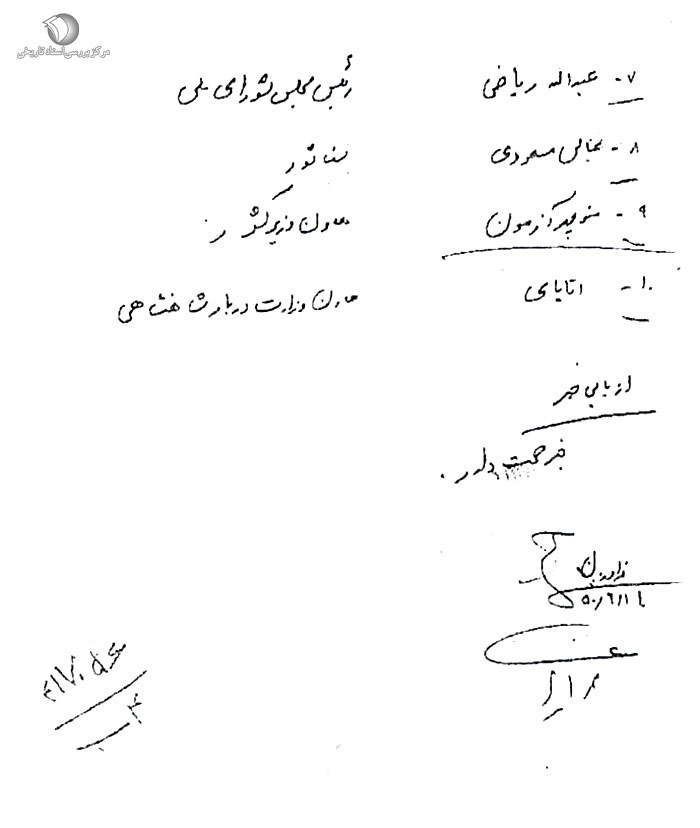 مرکز بررسی اسناد تاریخی
۷- عبداله ریاضی رئیس مجلس شورای ملی
۸- عباس مسعودی سناتور
۹- منوچهر آزمون معاون وزیر کشور
۱۰- اتابای معاون وزارت دربار شاهنشاهی
ارزیابی خبر
خبر صحت دارد.
۵۰/۶/۱۸